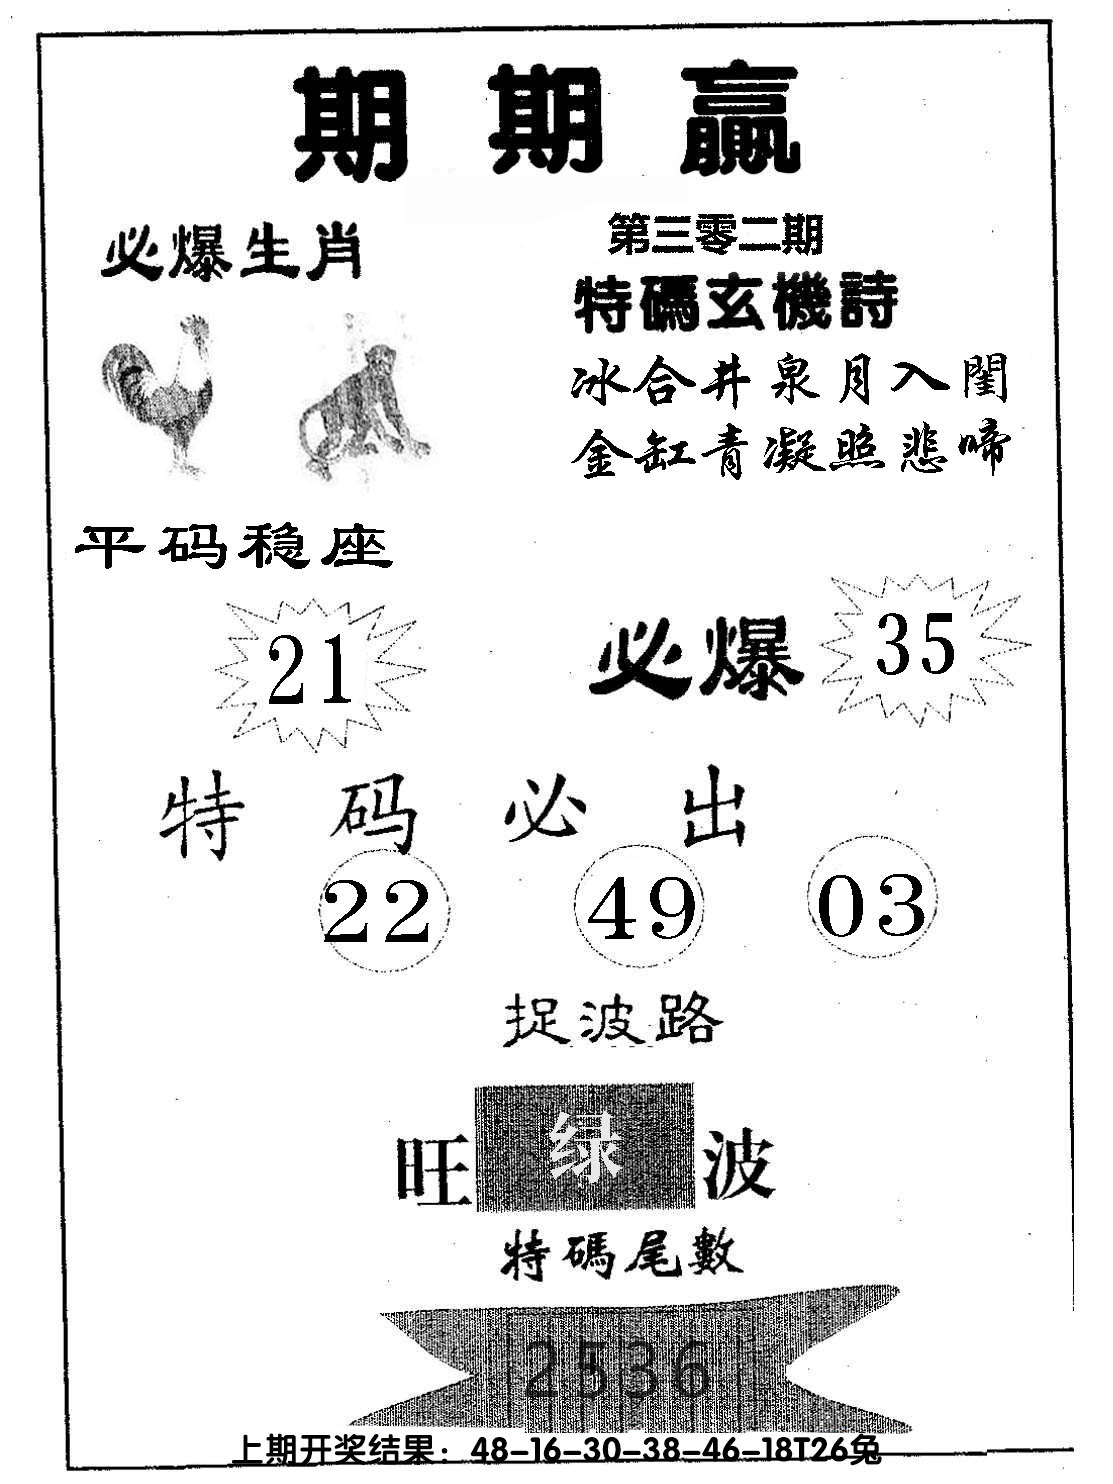 期期赢
必爆生肖
第三零二期
特碼玄機詩
冰合井泉月入閨
金缸青凝照悲啼
平码稳座
21
必爆 35
特码必出
22 49 03
捉波路
旺 绿 波
特碼尾數
2536
上期开奖结果：48-16-30-38-46-18T26兔